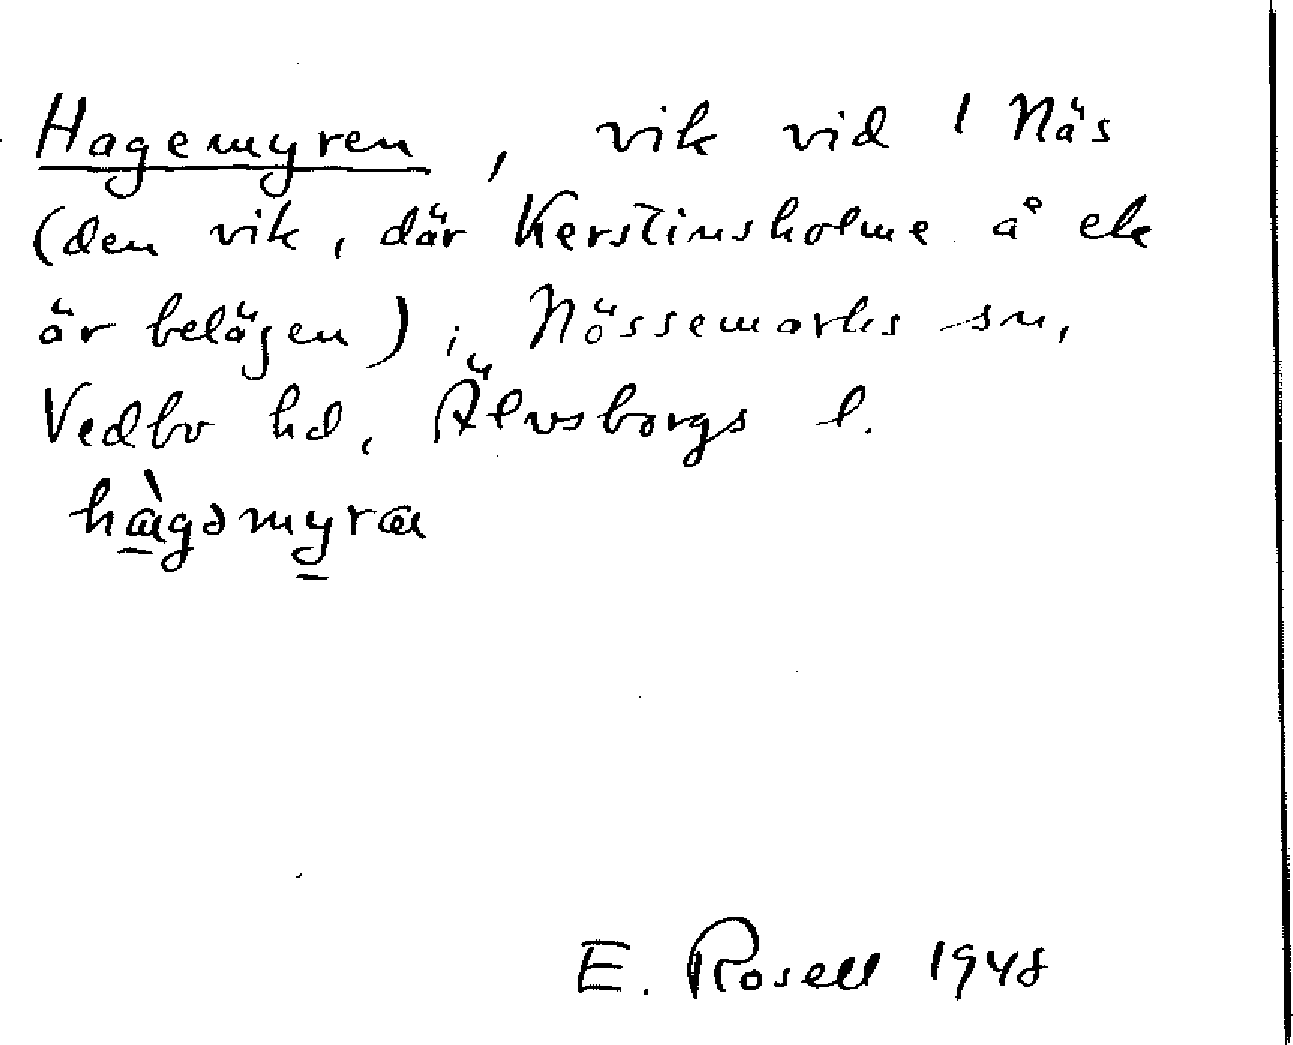 Hagemyren, vik vid 1 Näs
(den vik, där Kerstinsholme å ek
är belägen) i Nössemarks sn,
Vedbo hd, Älvsborgs l.
hàgəmyra
E. Rosell 1948